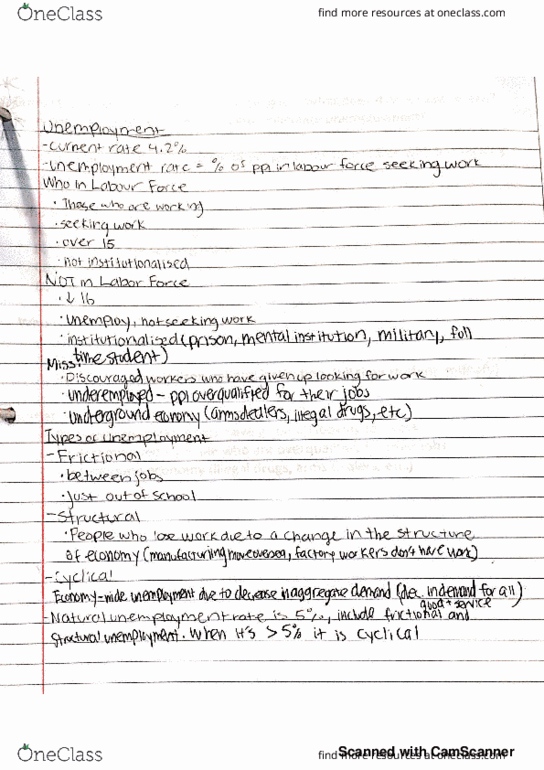 OneClass
find more resources at oneclass.com
Unemployment
-Current rate 4.2%
-Unemployment rate = % of ppl in labour force seeking work
Who in Labour Force
· Those who are working
· seeking work
· over 15
· not institutionalised
NOT in Labor Force
· ↓ 16
· Unemploy, not seeking work
· institutionalised (prison, mental institution, military, full
time student)
Miss:
· Discouraged workers who have given up looking for work
· underemployed - ppl overqualified for their jobs
· Underground economy (armsdealers, illegal drugs, etc)
Types of Unemployment
-Frictional
· between jobs
· just out of school
-Structural
· People who lose work due to a change in the structure
of economy (manufacturing move oversea, factory workers don't have work)
-Cyclical
Economy-wide unemployment due to decrease in aggregate demand (dec. in demand for all
good + service)
-Natural unemployment rate is 5%, include frictional and
structural unemployment. When it's > 5% it is cyclical
OneClass
find more resources at oneclass.com
Scanned with CamScanner